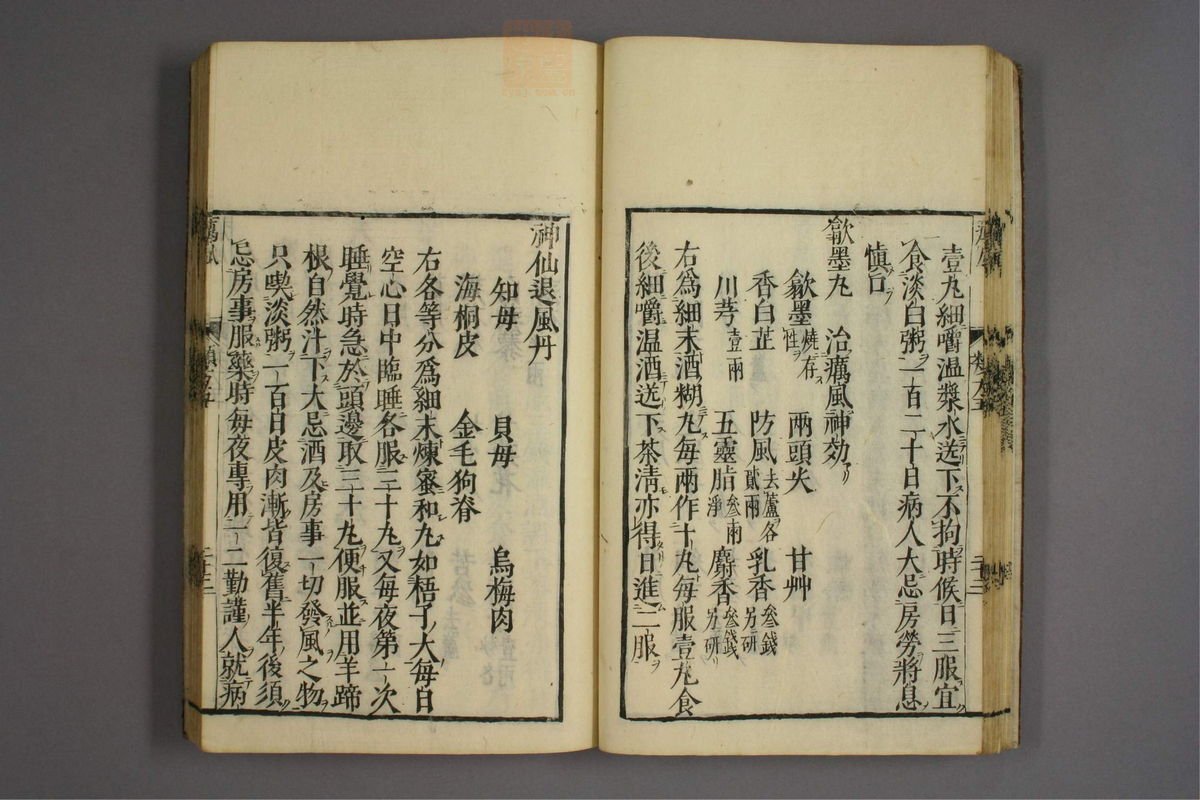 壹丸細嚼温漿水送下不拘時候日三服宜
食淡白粥一百二十日病人大忌房勞將息
慎口
歙墨丸 治癘風神効
歙墨燒存性 兩頭尖 甘艸
香白芷 防風去蘆各貳兩 乳香叄錢另研
川芎壹兩 五靈脂叄兩淨 麝香叄錢另研
右爲細末酒糊丸每兩作十丸每服壹丸食
後細嚼温酒送下茶清亦得日進二服
神仙退風丹
知母 貝母 烏梅肉
海桐皮 金毛狗脊
右各等分爲細末煉蜜和丸如梧子大每日
空心日中臨睡各服三十丸又每夜第一次
睡覺時急於頭邊取三十丸便服並用羊蹄
根自然汁下大忌酒及房事一切發風之物
只喫淡粥一百日皮肉漸皆復舊半年後須
忌房事服藥時每夜專用一二勤謹人就病
癘風
二十三